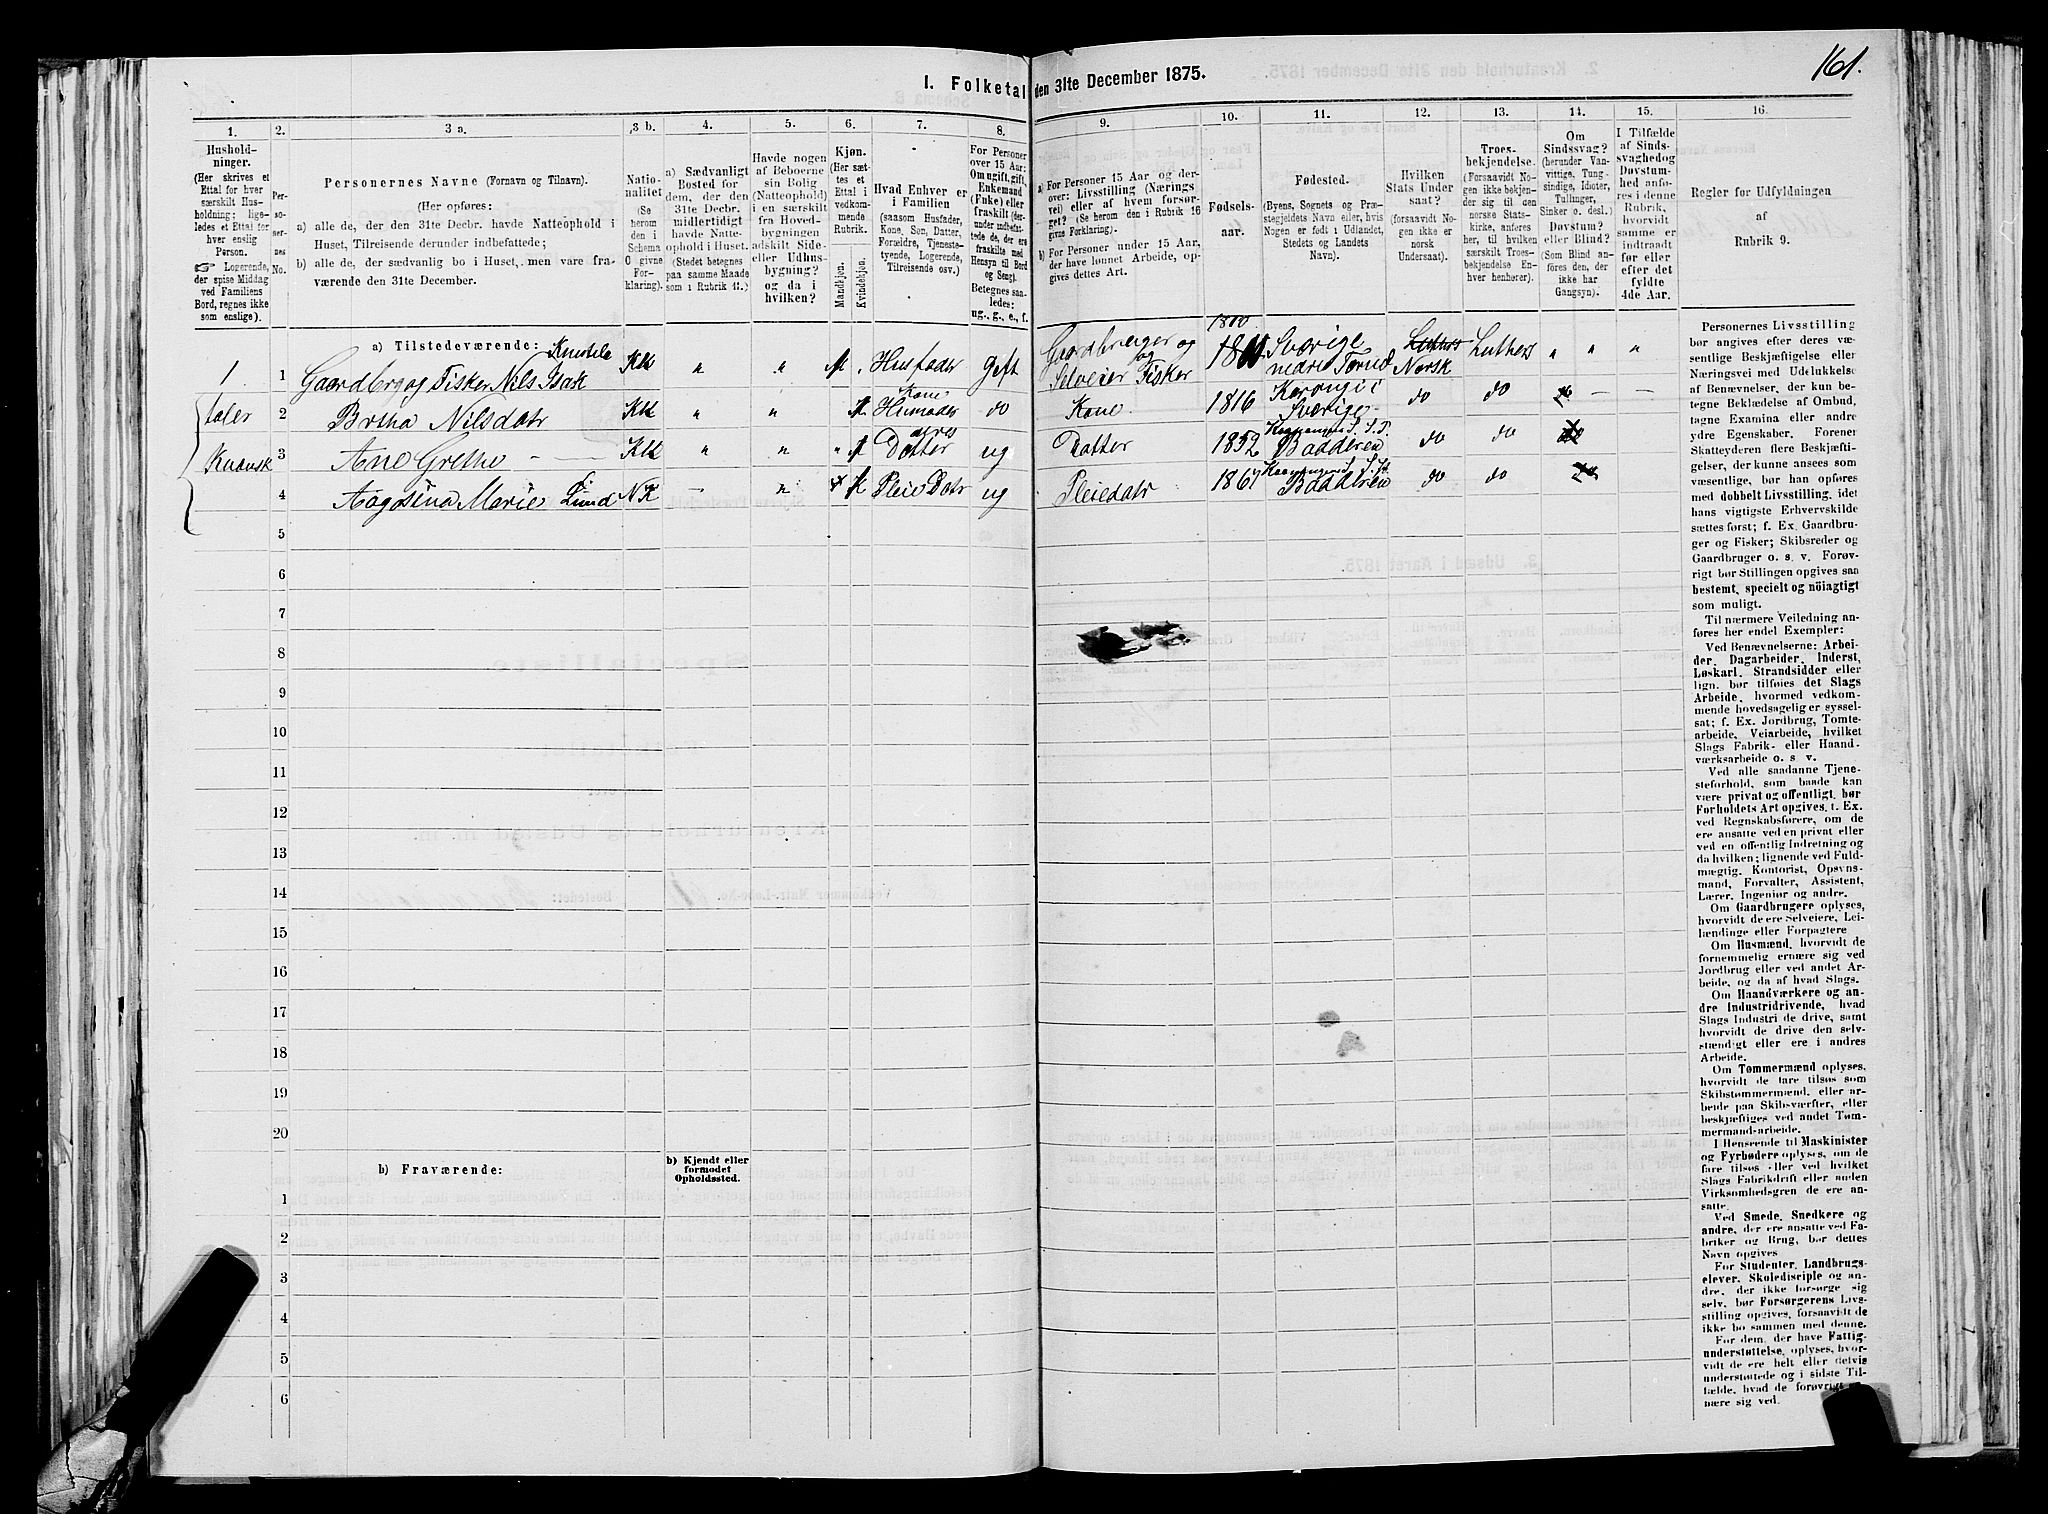 161.
I. Folketal den 31te December 1875.
1. 2. 3 a. 3 b. 4. 5. 6. 7. 8. 9. 10. 11. 12. 13. 14. 15. 16.
Hushold-
ninger.
(Her skrives et
Ettal for hver
særskilt Hus-
holdning; lige-
ledes et Ettal for
hver enslig
Person.
☞ Logerende,
der spise Middag
ved Familiens
Bord, regnes ikke
som enslige).
Per-
so-
ner-
nes
No.
Personernes Navne (Fornavn og Tilnavn).
(Her opføres:
a) alle de, der den 31te Decbr. havde Natteophold i
Huset, Tilreisende derunder indbefattede;
b) alle de, der sædvanlig bo i Huset, men vare fra-
værende den 31te December.
Natio-
nalitet
(Se
herom
den i
Schema
O givne
For-
klaring).
a) Sædvanligt
Bosted for
dem, der den
31te Decbr.
midlertidigt
havde Natte-
ophold i Huset.
(Stedet betegnes
paa samme Maade
som i Rubrik 11.)
Havde nogen
af Beboerne
sin Bolig
(Natteophold)
i en særskilt
fra Hoved-
bygningen
adskilt Side-
eller Udhus-
bygning?
og da i
hvilken?
Kjøn.
(Her sæt-
tes et
Ettal i
vedkom-
mende
Rubrik.
Mandkjøn.
Kvindekjøn.
Hvad Enhver er
i Familien
(saasom Husfader,
Kone, Søn, Datter,
Forældre, Tjeneste-
tyende, Logerende,
Tilreisende osv.)
For Personer
over 15 Aar:
Om ugift, gift,
Enkemand
(Enke) eller
fraskilt (der-
under indbefat-
tede de, der ere
fraskilte med
Hensyn til Bord
og Seng).
Betegnes saa-
ledes:
ug., g., e., f.
a) For Personer 15 Aar og der-
over: Livsstilling (Nærings-
vei) eller af hvem forsør-
get? (Se herom den i Rubrik 16
givne Forklaring.)
b) For Personer under 15 Aar,
der have lønnet Arbeide, op-
gives dettes Art.
Fødsels-
aar.
Fødested.
(Byens, Sognets og Præ-
stegjeldets Navn eller, hvis
Nogen er født i Udlandet,
Stedets og Landets
Navn).
Hvilken
Stats Under-
saat?
(forsaavidt No-
gen ikke er
norsk
Undersaat).
Troes-
bekjendelse.
(Forsaavidt No-
gen ikke bekjen-
der sig til den
norske Stats-
kirke, hør til hvilken
særskilt Troes-
bekjendelse En-
hver henhører).
Om
Sindssvag?
(herunder Van-
vittige, Tung-
sindige, Idioter,
Tullinger,
Sinker o. desl.)
Døvstum?
eller Blind?
(Som Blind an-
føres den, der
ikke har
Gangsyn).
I Tilfælde
af Sinds-
svaghed og
Døvstum-
hed anfø-
res i denne
Rubrik,
hvorvidt
samme er
indtraadt
før eller
efter det
fyldte
4de Aar.
Regler for Udfyldningen
af
Rubrik 9.
a) Tilstedeværende:
1 1 Gaardbrg og Fisker Nils Isak KK " " Husfader Gift Gaardbruger og Selveier Fisker 1800 Sverige nedre Torne Norsk Luthers " " "
taler
2 Britha Nilsdatr KK " " Kone do Kone 1816 Karungi i Sverige do do
Kvænsk 3 Ane Grethe — — KK " " Datter ug Datter 1852 Badderen do do
4 Augosina Marie Lund NK — " Pleie Datr ug Pleiedatr 1867 Badderen do do
5
6
7
8
9
10
11
12
13
14
15
16
17
18
19
20
b) Fraværende:
b) Kjendt eller
formodet
Opholdssted.
1
2
3
4
5
6
Personernes Livsstilling
bør angives efter deres væ-
sentlige Beskjæftigelse eller
Næringsvei med Udelukkelse
af Benævnelser, der kun be-
tegne Beklædelse af Ombud,
tagne Examina eller andre
ydre Egenskaber. Forener
Skatteyderen flere Beskjæfti-
gelser, der kunne ansees som
væsentlige, bør han opføres
med dobbelt Livsstilling, idet
hans vigtigste Erhvervskilde
sættes først; f. Ex. Gaardbru-
ger og Fisker; Skibsreder og
Gaardbruger o. s. v. Forøv-
rigt bør Stillingen opgives saa
bestemt, specielt og nöiagtigt
som muligt.
Til nærmere Veiledning an-
føres her endel Exempler:
Ved Benævnelserne: Arbei-
der, Dagarbeider, Inderst,
Løskarl, Strandsidder eller
lign. bør tilføies det Slags
Arbeide, hvormed vedkom-
mende hovedsagelig er syssel-
sat; f. Ex. Jordbrug, Tomte-
arbeide, Veiarbeide, hvilket
Slags Fabrik- eller Haand-
værksarbeide o. s. v.
Ved alle saadanne Tjene-
steforhold, som baade kan
være privat og offentligt, bør
Forholdets Art opgives, t. Ex.
ved Regnskabsførere, om de
ere ansatte ved en privat eller
ved en offentlig Indretning og
da hvilken; lignende ved Fuld-
mægtig, Kontorist, Opsyns-
mand, Forvalter, Assistent,
Lærer, Ingeniør og andre.
Om Gaardbrugere oplyses,
hvorvidt de ere Selveiere, Lei-
lændinge eller Forpagtere
Om Husmænd, hvorvidt de
fornemmelig ernære sig ved
Jordbrug eller ved andet Ar-
beide, og da af hvad Slags.
Om Haandværkere og an-
dre Industridrivende, hvad
Slags Industri de drive, samt
hvorvidt de drive den selv-
stændigt eller ere i andres
Arbeide.
Om Tømmermænd oplyses,
hvorvidt de fare tilsøs som
Skibstømmermænd, eller ar-
beide paa Skibsværfter, eller
beskjæftiges ved andet Tøm-
mermand-arbeide.
I Henseende til Maskinister
og Fyrbødere oplyses, om de
fare tilsøs eller ved hvilket
Slags Fabrikdrift eller anden
Virksomhedsgren de ere an-
satte.
Ved Smede, Snedkere og
andre, der ere ansatte ved Fa-
briker og Brug, bør dettes
Navn opgives
For Studenter, Landbrugs-
elever, Skoledisciple og an-
dre, der ikke forsørge sig
selv, bør Forsørgerens Livs-
stilling opgives, forsaavidt de
ikke bo sammen med denne.
For dem, der have Fattig-
understøttelse, oplyses, hvor-
vidt de ere helt eller delvis
understøttede og i sidste Til-
fælde, hvad de forøvrigt
nære sig ved.